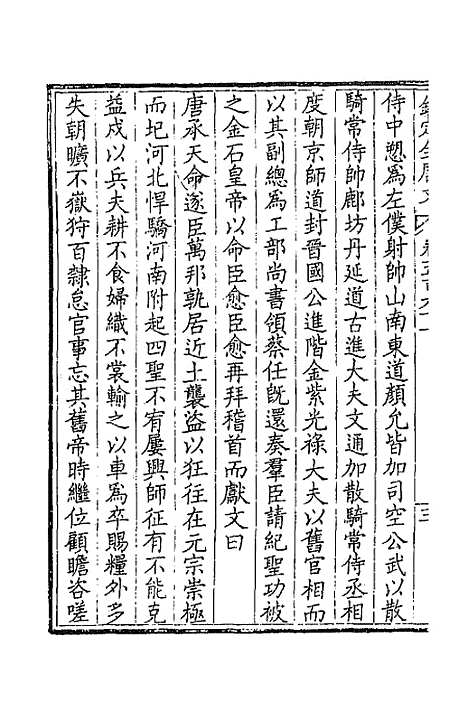 欽定全唐文 卷五百六十一 三
侍中愬為左僕射帥山南東道顏允皆加司空公武以散
騎常侍帥鄜坊丹延道古進大夫文通加散騎常侍丞相
度朝京師道封晉國公進階金紫光祿大夫以舊官相而
以其副總為工部尚書領蔡任既還奏羣臣請紀聖功被
之金石皇帝以命臣愈臣愈再拜稽首而獻文曰
唐承天命遂臣萬邦孰居近土襲盜以狂往在元宗崇極
而圮河北悍驕河南附起四聖不宥屢興師征有不能克
益戍以兵夫耕不食婦織不裳輸之以車爲卒賜糧外多
失朝曠不嶽狩百隸怠官事忘其舊帝時繼位顧瞻咨嗟